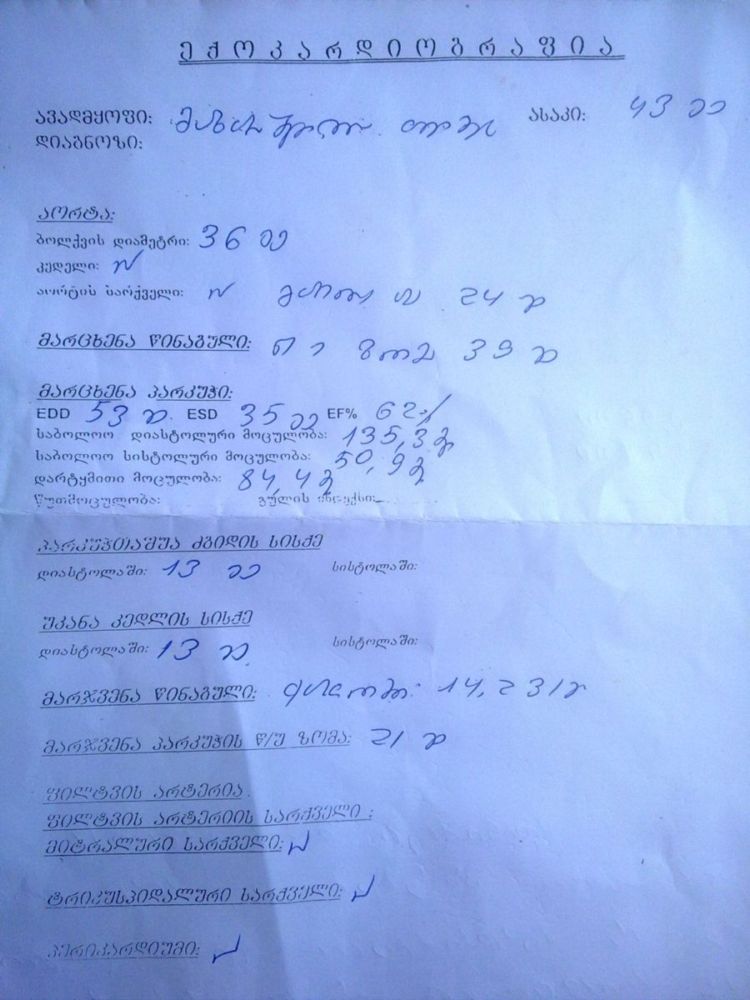 ექოკარდიოგრაფია
ავადმყოფი: ასაკი: 43 წ
დიაგნოზი:
აორტა:
ბოლქვის დიამეტრი: 36 მმ
კედელი: N
აორტის სარქველი: N 24 მმ
მარცხენა წინაგული: ზომა 39 მმ
მარცხენა პარკუჭი:
EDD 53 მმ. ESD 35 მმ EF% 62%
საბოლოო დიასტოლური მოცულობა: 135,3
საბოლოო სისტოლური მოცულობა: 50,9
დარტყმითი მოცულობა: 84,4
წუთმოცულობა: გულის ინდექსი:
პარკუჭთაშუა ძგიდის სისქე
დიასტოლაში: 13 მმ სისტოლაში:
უკანა კედლის სისქე
დიასტოლაში: 13 მმ სისტოლაში:
მარჯვენა წინაგული: ფართობი: 14,23
მარჯვენა პარკუჭის წ/უ ზომა: 21 მმ
ფილტვის არტერია.
ფილტვის არტერიის სარქველი:
მიტრალური სარქველი: N
ტრიკუსპიდალური სარქველი: N
პერიკარდიუმი: N